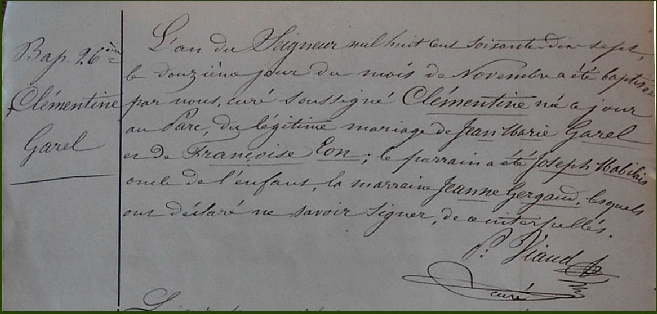 Bap. 26ème
Clémentine
Garel
L'an du Seigneur mil huit cent soixante dix sept,
le douzième jour du mois de Novembre a été baptisée
par nous, curé soussigné Clémentine née ce jour
au Parc, du légitime mariage de Jean Marie Garel
et de Françoise Eon; le parrain a été Joseph Mabilais
oncle de l'enfant, la marraine Jeanne Gergaud, lesquels
ont déclaré ne savoir signer, de ce interpellés.
P. Viaud
curé